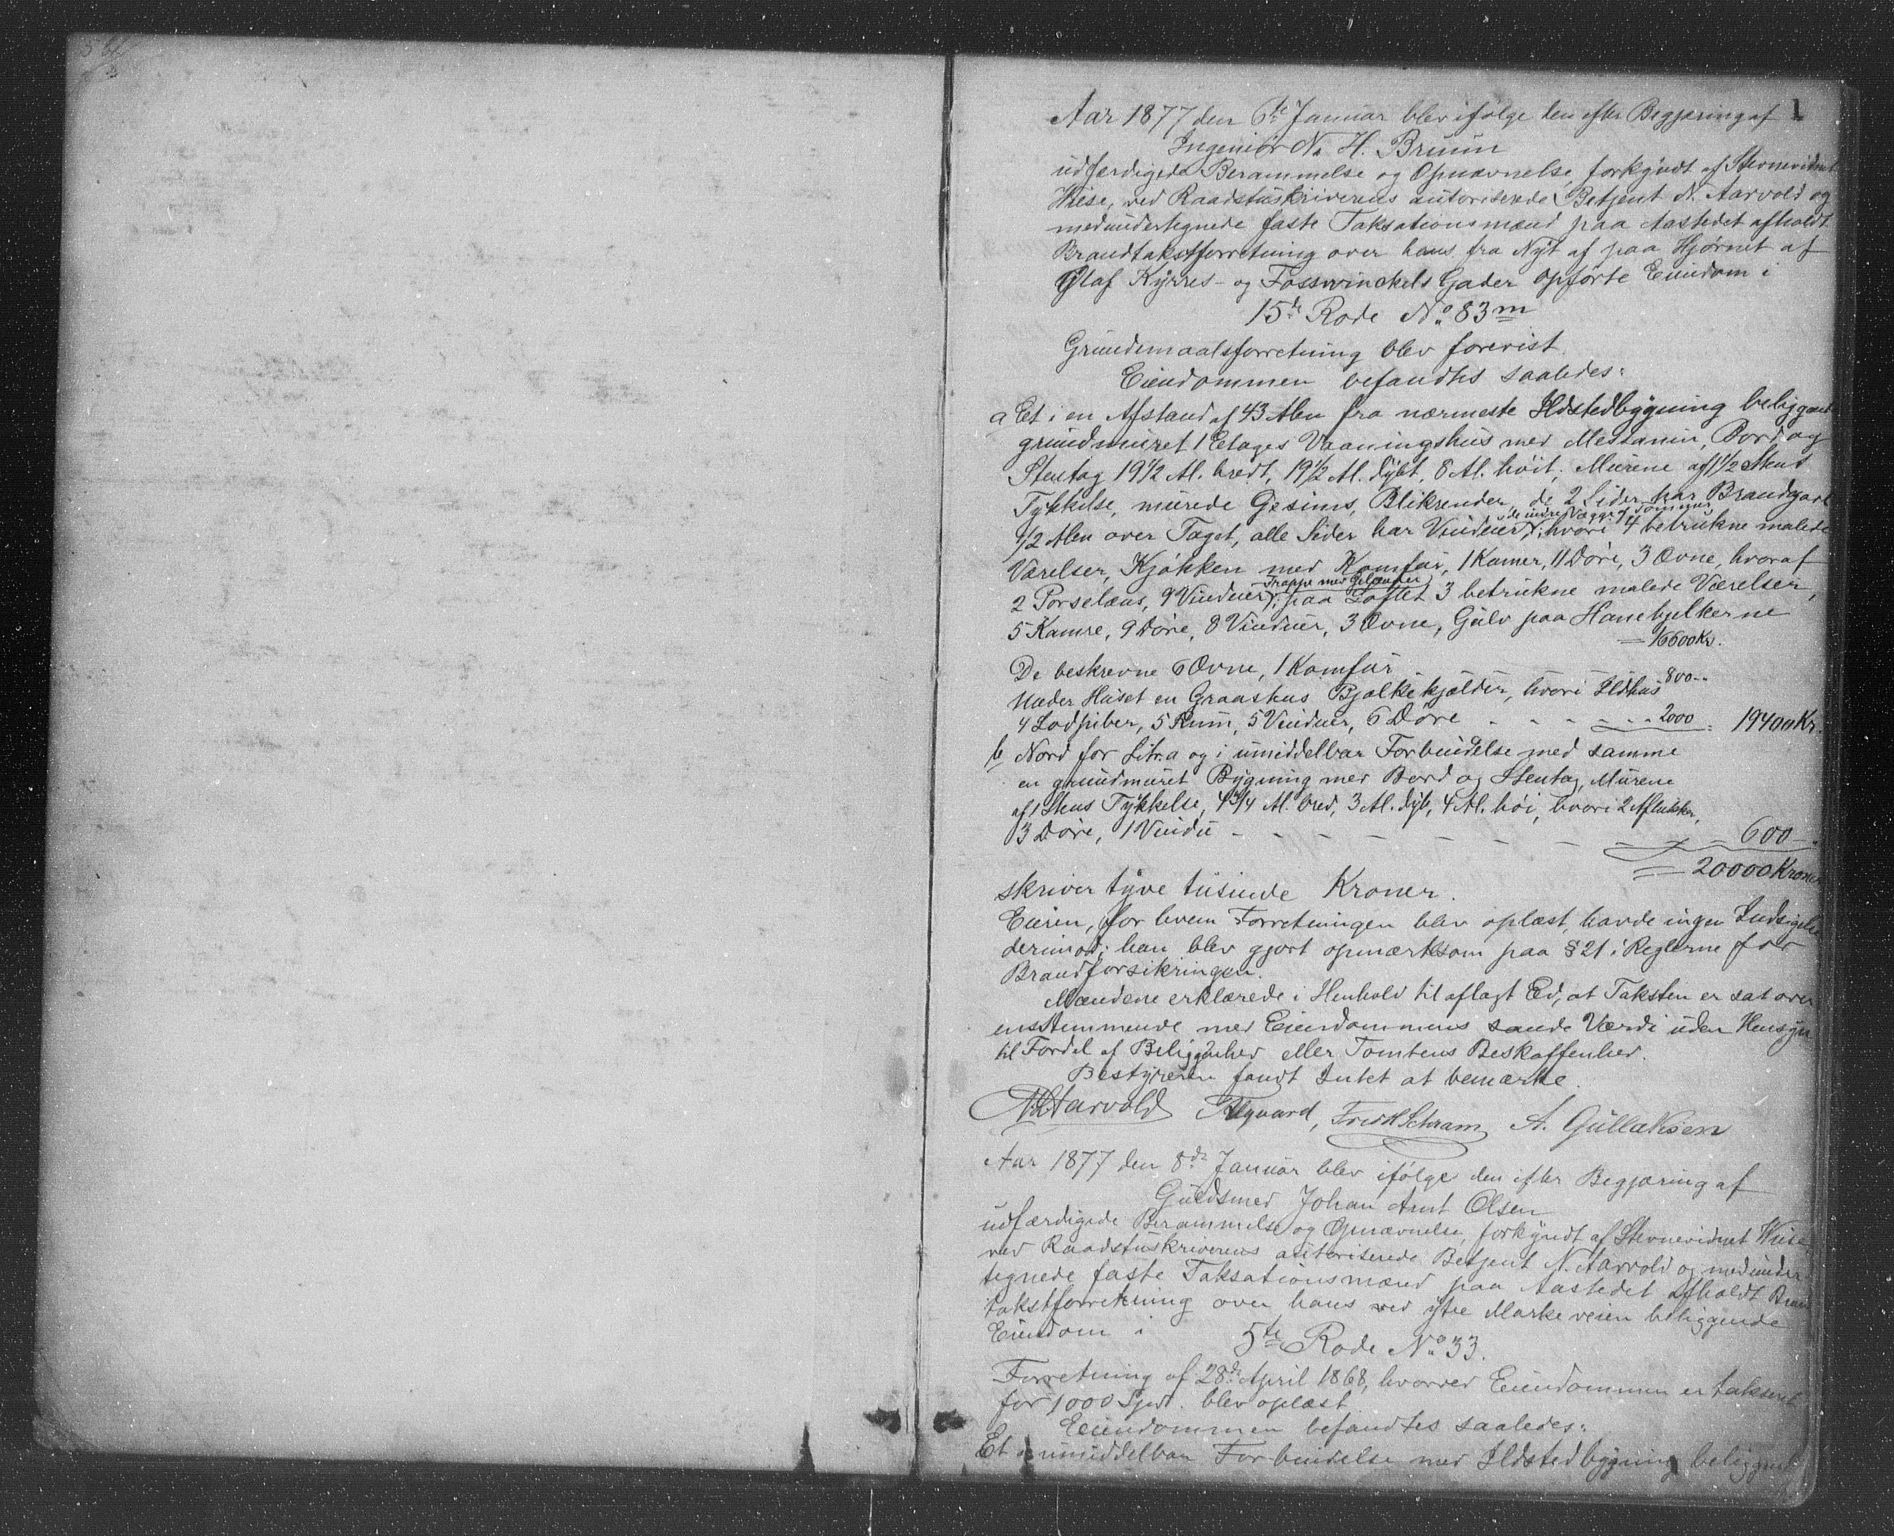 1
Aar 1877 den 6te Januar blev ifølge den efter Begjæring af
Ingeniør N. H. Bruun
udfærdigede Berammelse og Opnævnelse, forkyndt af Stevnevidnet
Wiese, ved Raadstuskriverens autoriserede Betjent N. Aarvold og
medundertegnede faste Taksationsmænd paa Aastedet afholdt
Brandtakstforretning over hans fra Nyt af paa Hjørnet af
Olaf Kyrres- og Fosswinckels Gader opførte Eiendom i
15de Rode No. 83m
Grundemaalsforretning blev forevist.
Eiendommen befandtes saaledes:
a Et i en Afstand af 43 Alen fra nærmeste Ildstedbygning beliggende
grundmuret 1 Etages Vaaningshus med Messanin, Bord og
Stentag 19 1/2 Al. bredt, 19 1/2 Al. dybt, 8 Al. høit; Murene af 1 1/2 Stens
Tykkelse, murede Gesims, Blikrender, de 2 Sider har Brandgavl
1/2 Alen over Taget, alle Sider har Vinduer, de indre Vægge af Tømmer; hvori 4 betrukne malede
Værelser, Kjøkken med Komfur, 1 Kamer, 11 Døre, 3 Ovne, hvoraf
2 Porselæns, 9 Vinduer, Trappe med Gelænder; paa Loftet 3 betrukne malede Værelser,
5 Kamre, 9 Døre, 8 Vinduer, 3 Ovne, Gulv paa Hanebjelkerne
= 16600 Kr.
De beskrevne 6 Ovne, 1 Komfur 800 -
Under Huset en Graastens Bjælkekjelder, hvori Ildhus
4 Lodpiber, 5 Rum, 5 Vinduer, 6 Døre - - - - - - 2000 = 19400 Kr.
b Nord for Litr. a og i umiddelbar Forbindelse med samme
en grundmuret Bygning med Bord og Stentag, Murene
af 1 Stens Tykkelse, 4 3/4 Al. bred, 3 Al. dyb, 4 Al. høi, hvori 2 Aflukker,
3 Døre, 1 Vindu - - - - - - - - 600 -
= 20000 Kroner
skriver tyve tusinde Kroner.
Eieren, for hvem Forretningen blev oplæst, havde ingen Indsigelse
derimod; han blev gjort opmærksom paa § 21 i Reglerne for
Brandforsikringen.
Mændene erklærede i Henhold til aflagt Ed, at Taksten er sat over
ensstemmende med Eiendommens sande Værdi uden Hensyn
til Fordel af Beliggenhed eller Tomtens Beskaffenhed.
Bestyreren fandt Intet at bemærke.
N Aarvold Fredk Schram A. Gullaksen
Aar 1877 den 8de Januar blev ifølge den efter Begjæring af
Guldsmed Johan Arnt Olsen
udfærdigede Berammelse og Opnævnelse, forkyndt af Stevnevidnet Wiese,
ved Raadstuskriverens autoriserede Betjent N. Aarvold og medunder
tegnede faste Taksationsmænd paa Aastedet afholdt Brand
takstforretning over hans ved ytre Markeveien beliggende
Eiendom i
5te Rode No. 33.
Forretning af 28de April 1868, hvorved Eiendommen er takseret
for 1000 Spd. blev oplæst.
Eiendommen befandtes saaledes:
Et i umiddelbar Forbindelse med Ildstedbygning beliggende